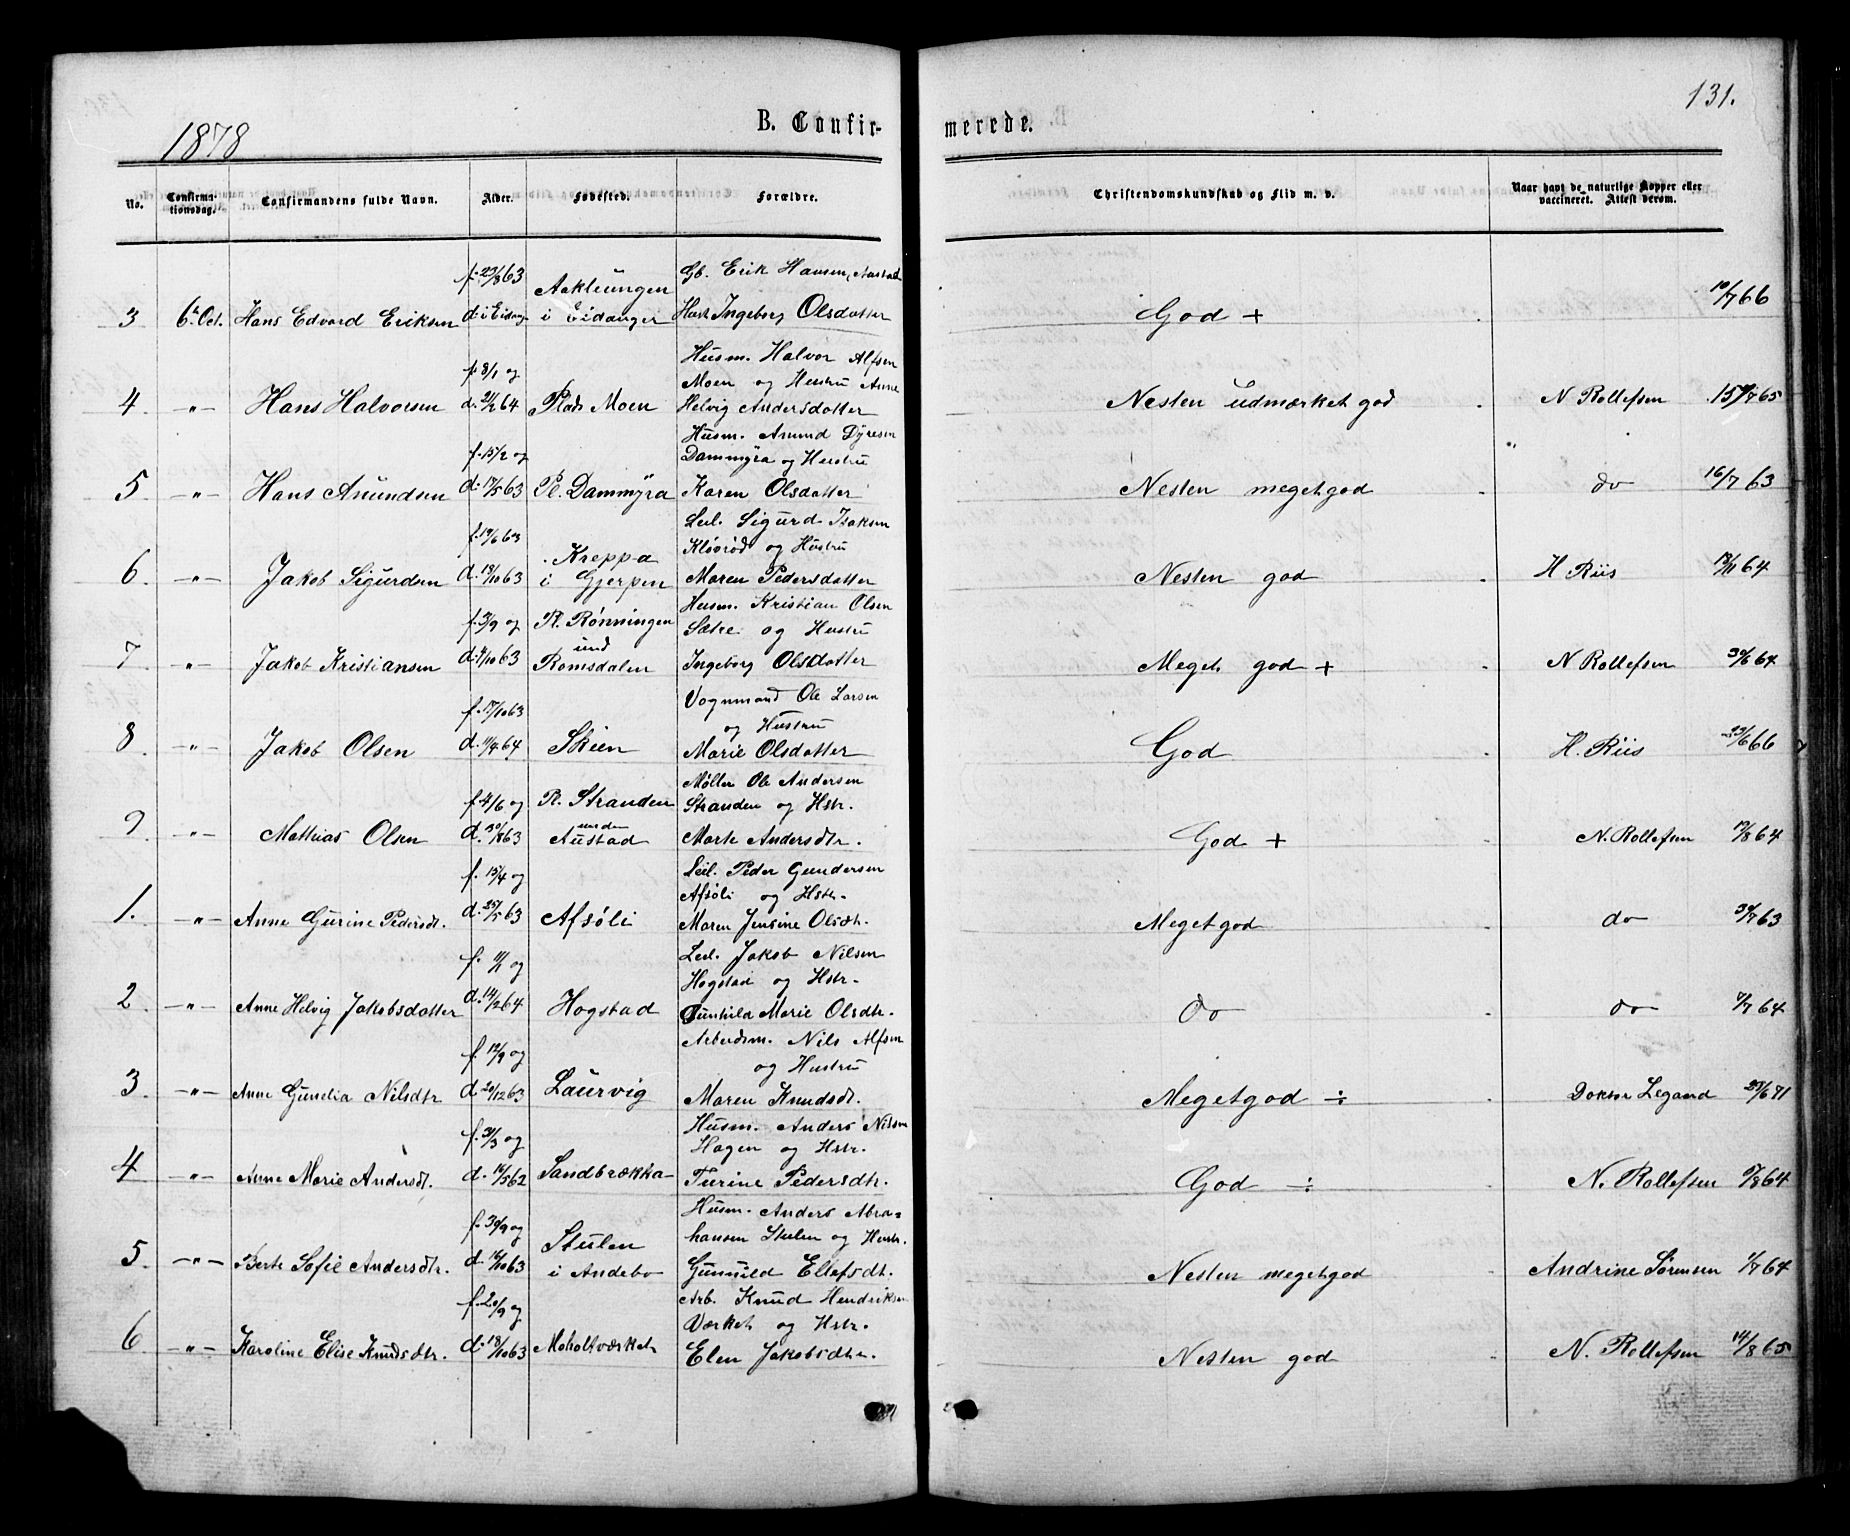 131.
1878
B. Confir-
merede.
No.
Confirma-
tionsdag.
Confirmandens fulde Navn.
Alder.
Fødested.
Forældre.
Christendomskundskab og Flid m. v.
Naar havt de naturlige Kopper eller
vaccineret. Attest derom.
f. 29/8 63
Gb. Erik Hansen, Austad
Aakleungen
3 6te Oct. Hans Edvard Eriksen d. i Eidang. i Eidanger Hust. Ingeborg Olsdatter God + 10/7 66
f. 8/1 og
Husm. Halvor Alfsen
Moen og Hustru Anne
4 -"- Hans Halvorsen d. 21/2 64 Plads Moen Helvig Andersdatter Nesten udmærket god N Rollefsen 15/7 65
f. 15/2 og
Husm. Anund Dyresen
Dammyra og Hustru
5 -"- Hans Anundsen d. 17/5 63 Pl. Dammyra Karen Olsdatter Nesten megetgod do 16/7 63
f. 19/6 63
Leil. Sigurd Isaksen
Kreppa
Kløvrød og Hustru
6. -"- Jakob Sigurdsen d. 18/10 63 i Gjerpen Maren Pedersdatter Nesten god H Riis 18/11 64
f. 3/9 og
Pl. Rønningen
Husm. Kristian Olsen
und
Sætre og Hustru
7 -"- Jakob Kristiansen d. 4/10 63 Romsdalen Ingeborg Olsdatter Meget god + N Rollefsen 30/6 64
f. 17/10 63
Vognmand Ole Larsen
og Hustru
8 -"- Jakob Olsen d. 11/4 64 Skien Marie Olsdatter God H. Riis 29/6 66
f. 4/6 og
Pl. Stranden
Møller Ole Andersen
Stranden og Hstr.
under
9 -"- Mathias Olsen d. 30/8 63 Austad Marte Andersdtr. God + N. Rollefsen 17/8 64
f. 15/4 og
Leil. Peder Gundersen
Afsøli og Hstr.
1. -"- Anne Gurine Pedersdt. d. 25/5 63 Afsøli Maren Jensine Olsdtr. Megetgod do 31/7 63
f. 11/1 og
Leil. Jakob Nilsen
Hogstad og Hstr.
2 -"- Anne Helvig Jakobsdatter d. 14/2 64 Hogstad Gunhild Marie Olsdtr. do do 7/7 64
f. 12/9 og
Arbeidsm. Nils Alfsen
og Hustru
3 -"- Anne Gunelia Nilsdtr d. 20/12 63 Laurvig Maren Knudsdt. Megetgod ÷ Doktor Legand 29/6 71
f. 31/3 og
Husm. Anders Nilsen
Hagen og Hstr.
4 -"- Anne Marie Andersdt. d. 16/5 62 Sandbrækka Turine Pedersdtr. God ÷ N. Rollefsen 9/8 64
f. 30/9 og
Husm. Anders Abra-
Stulen
hansen Stulen og Hustr.
5. -"- Berte Sofie Andersdtr. d. 16/10 63 i Andebo Gunnild Ellefsdt. Nesten megetgod Andrine Sørensen 1/7 64
f. 20/9 og
Arb. Knud Hendriksen
Værket og Hstr.
6 -"- Karoline Elise Knudsdtr. d. 18/10 63 Moholtværket Elen Jakobsdtr. Nesten god N. Rollefsen 14/8 65